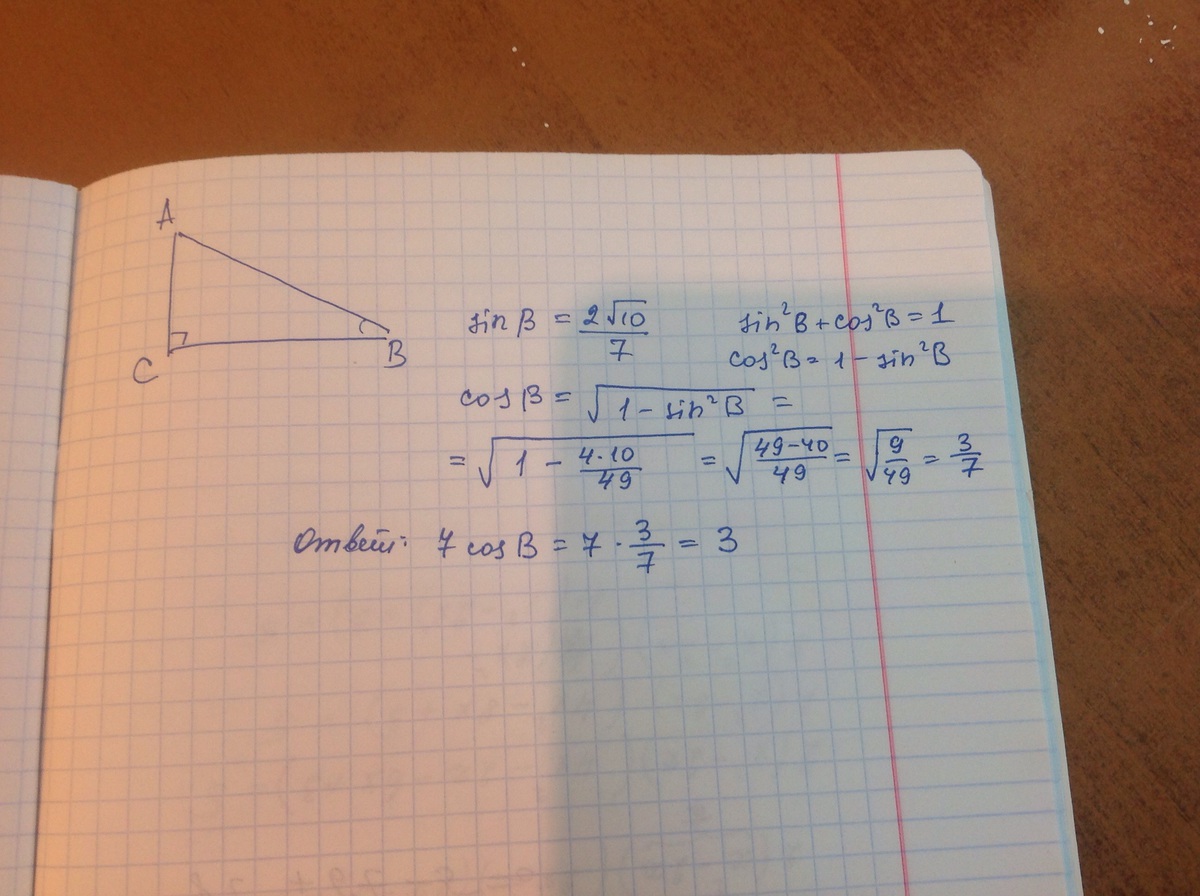 A
C
B
sin B = 2√10/7
sin²B + cos²B = 1
cos²B = 1 − sin²B
cos B = √(1 − sin²B) =
= √(1 − 4·10/49) = √((49−40)/49) = √(9/49) = 3/7
Ответ: 7 cos B = 7 · 3/7 = 3